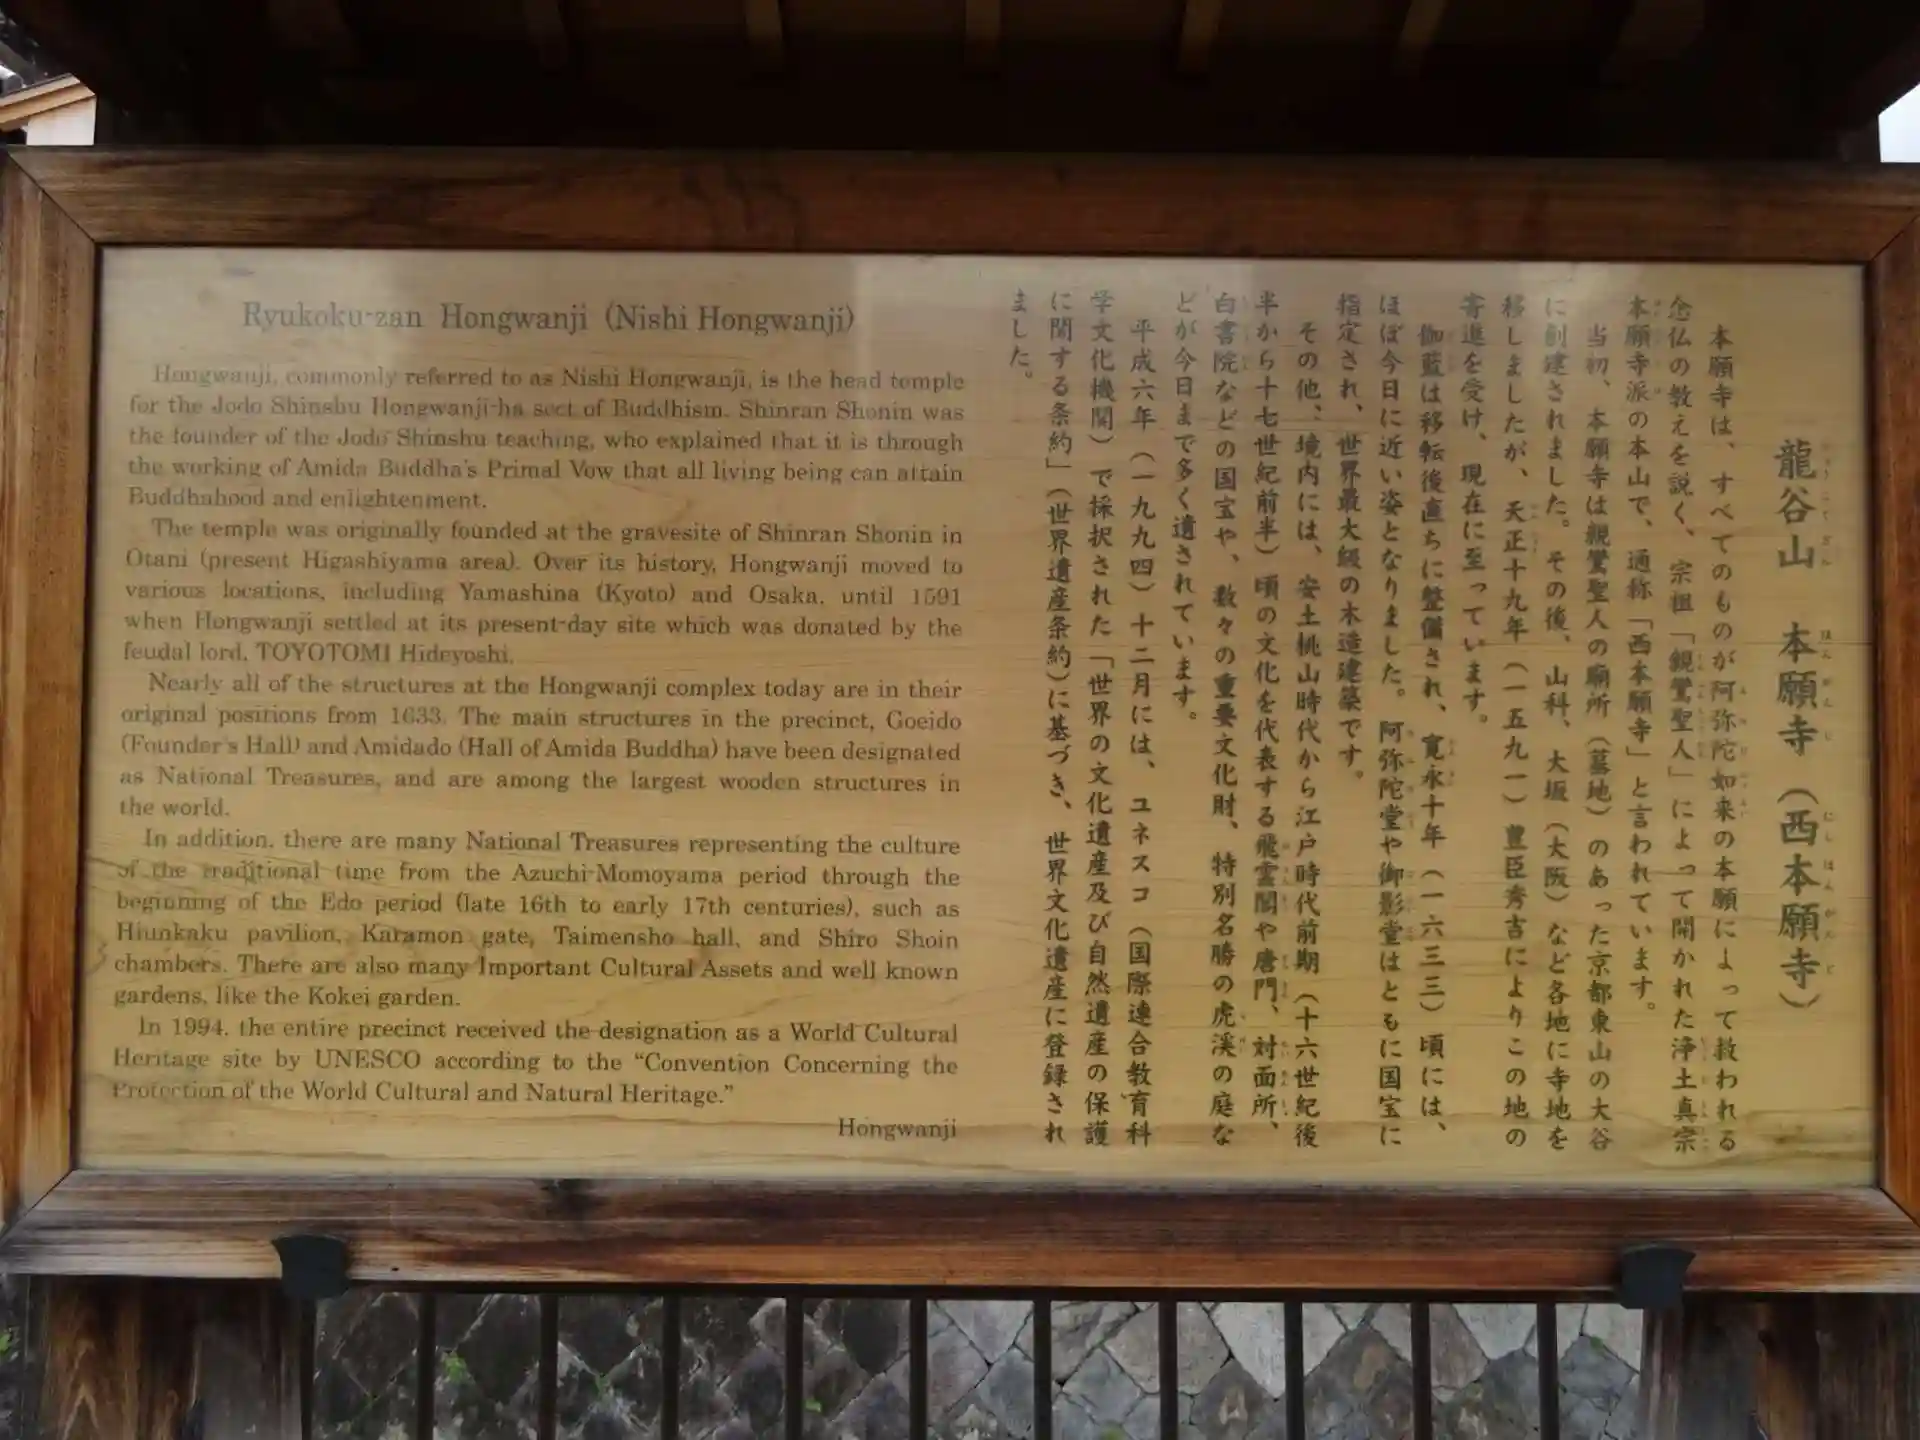 Ryukoku-zan Hongwanji (Nishi Hongwanji)
Hongwanji, commonly referred to as Nishi Hongwanji, is the head temple
for the Jodo Shinshu Hongwanji-ha sect of Buddhism. Shinran Shonin was
the founder of the Jodo Shinshu teaching, who explained that it is through
the working of Amida Buddha's Primal Vow that all living being can attain
Buddhahood and enlightenment.
The temple was originally founded at the gravesite of Shinran Shonin in
Otani (present Higashiyama area). Over its history, Hongwanji moved to
various locations, including Yamashina (Kyoto) and Osaka, until 1591
when Hongwanji settled at its present-day site which was donated by the
feudal lord, TOYOTOMI Hideyoshi.
Nearly all of the structures at the Hongwanji complex today are in their
original positions from 1633. The main structures in the precinct, Goeido
(Founder's Hall) and Amidado (Hall of Amida Buddha) have been designated
as National Treasures, and are among the largest wooden structures in
the world.
In addition, there are many National Treasures representing the culture
of the traditional time from the Azuchi-Momoyama period through the
beginning of the Edo period (late 16th to early 17th centuries), such as
Hiunkaku pavilion, Karamon gate, Taimensho hall, and Shiro Shoin
chambers. There are also many Important Cultural Assets and well known
gardens, like the Kokei garden.
In 1994, the entire precinct received the designation as a World Cultural
Heritage site by UNESCO according to the “Convention Concerning the
Protection of the World Cultural and Natural Heritage.”
Hongwanji
龍谷山 本願寺（西本願寺）
本願寺は、すべてのものが阿弥陀如来の本願によって救われる
念仏の教えを説く、宗祖「親鸞聖人」によって開かれた浄土真宗
本願寺派の本山で、通称「西本願寺」と言われています。
当初、本願寺は親鸞聖人の廟所（墓地）のあった京都東山の大谷
に創建されました。その後、山科、大坂（大阪）など各地に寺地を
移しましたが、天正十九年（一五九一）豊臣秀吉によりこの地の
寄進を受け、現在に至っています。
伽藍は移転後直ちに整備され、寛永十年（一六三三）頃には、
ほぼ今日に近い姿となりました。阿弥陀堂や御影堂はともに国宝に
指定され、世界最大級の木造建築です。
その他、境内には、安土桃山時代から江戸時代前期（十六世紀後
半から十七世紀前半）頃の文化を代表する飛雲閣や唐門、対面所、
白書院などの国宝や、数々の重要文化財、特別名勝の虎渓の庭な
どが今日まで多く遺されています。
平成六年（一九九四）十二月には、ユネスコ（国際連合教育科
学文化機関）で採択された「世界の文化遺産及び自然遺産の保護
に関する条約」（世界遺産条約）に基づき、世界文化遺産に登録され
ました。